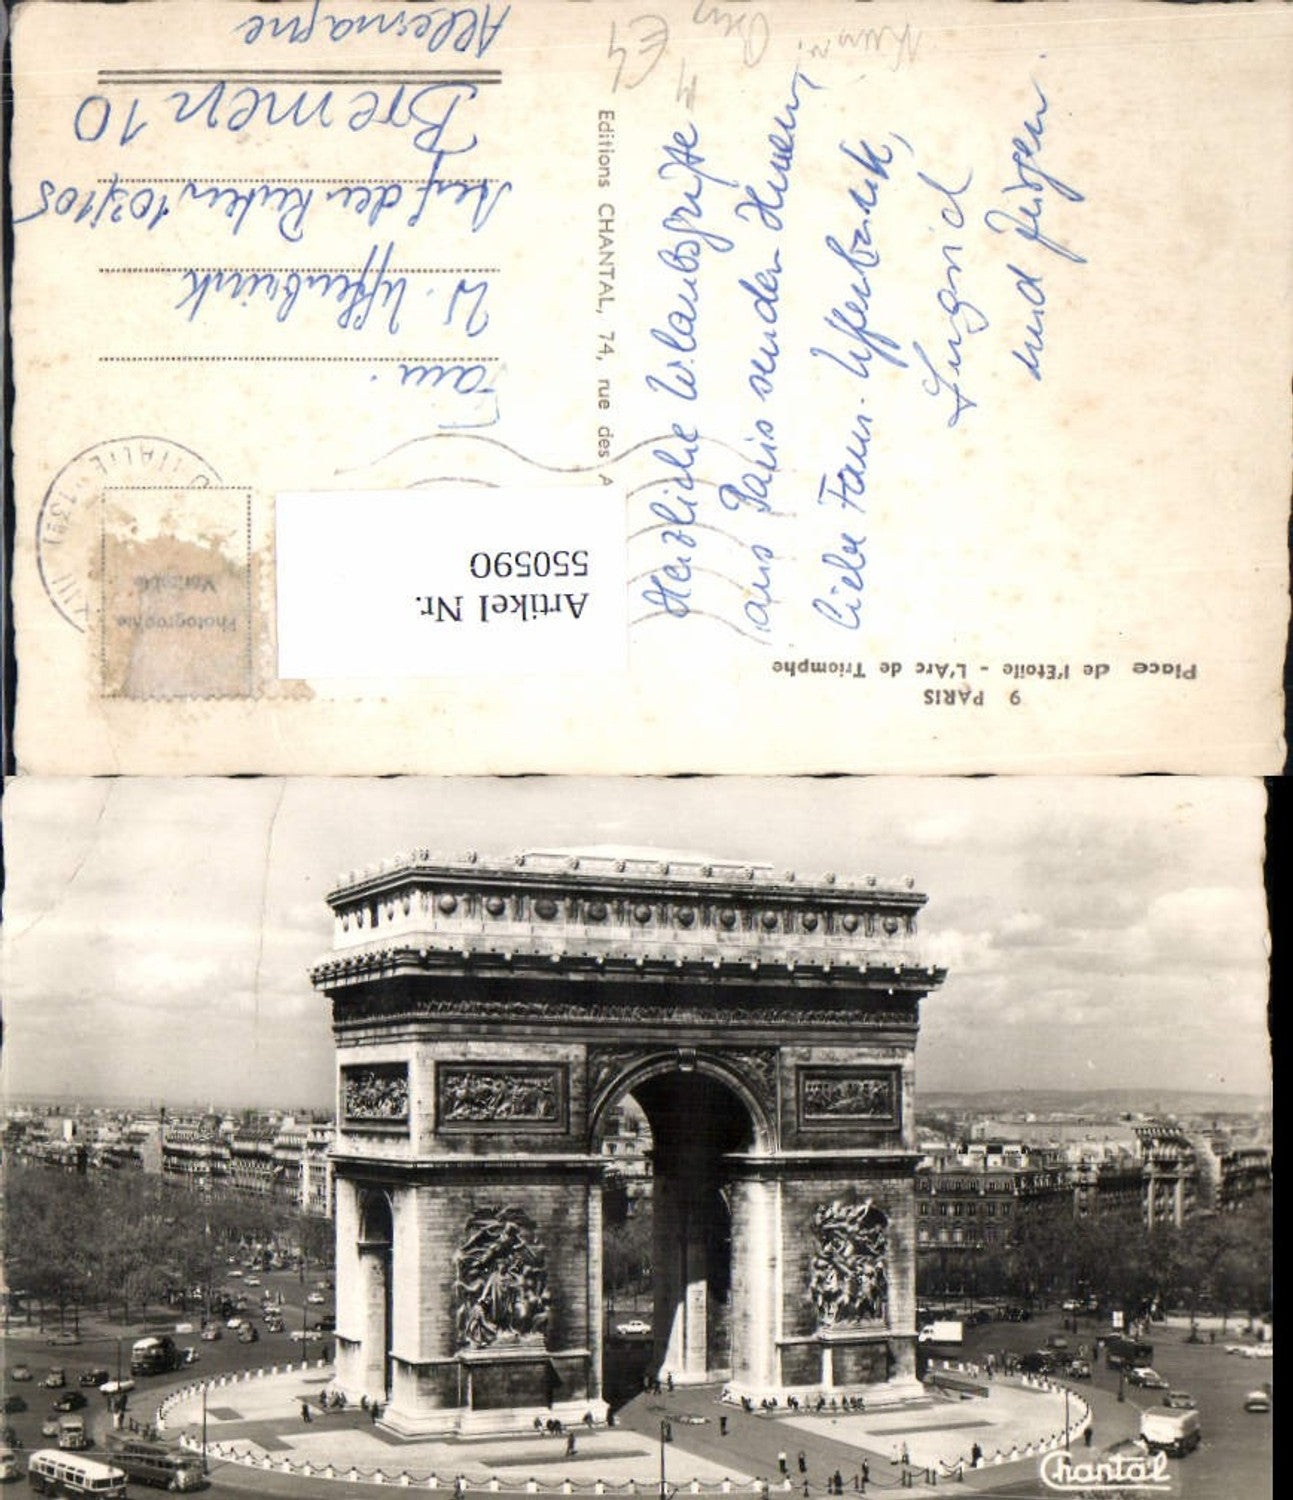 9 PARIS
Place de l'Etoile - L'Arc de Triomphe
Herzliche Urlaubsgrüße
aus Paris senden Ihnen,
liebe Fam. Uffenbrink,
Ingrid
und Jürgen.
Editions CHANTAL, 74, rue des A
Photographie
Véritable
D'ITALIE
XIII
Artikel Nr.
550590
Fam.
W. Uffenbrink
Auf den Ruten 103/105
Bremen 10
Allemagne
E4
Chantal